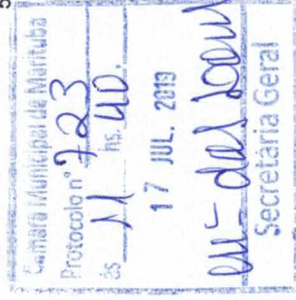 Câmara Municipal de Marituba
Protocolo nº 723
às 11 hs. 40.
17 JUL. 2019
Secretaria Geral